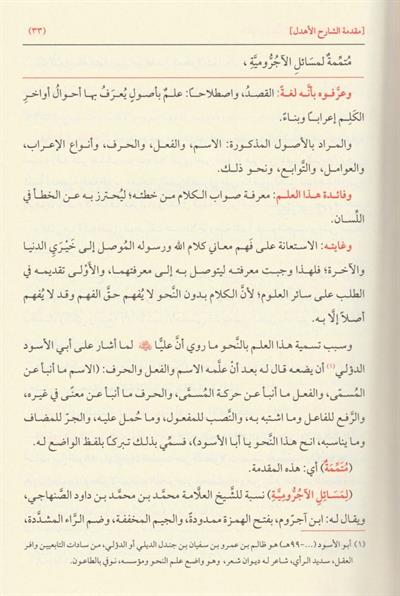 [مقدمة الشارح الأهدل] (٣٣)
مُتمِّمةٌ لمسَائلِ الآجُرُّوميَّةِ،
وعرَّفوه بأنَّه لغةً: القصدُ، واصطلاحًا: علمٌ بأصولٍ يُعرَفُ بها أحوالُ أواخرِ
الكَلِمِ إعرابًا وبناءً.
والمراد بالأصول المذكورة: الاسم، والفعل، والحرف، وأنواع الإعراب،
والعوامل، والتَّوابع، ونحو ذلك.
وفائدة هذا العلم: معرفة صواب الكلام من خطئه؛ ليُحترز به عن الخطأ في
اللِّسان.
وغايته: الاستعانة على فَهم معاني كلام الله ورسوله المُوصل إلى خَيْرَيِ الدنيا
والآخرة؛ فلهذا وجبت معرفته ليتوصل به إلى معرفتهما، والأَوْلى تقديمه في
الطلب على سائر العلوم؛ لأنَّ الكلام بدون النَّحو لا يُفهم حقَّ الفهم وقد لا يُفهم
أصلًا إلَّا به.
وسبب تسمية هذا العلم بالنَّحو ما روي أنَّ عليًّا ﵁ لما أشار على أبي الأسود
الدؤلي (١) أن يضعه قال له بعد أنْ علَّمه الاسم والفعل والحرف: (الاسم ما أنبأ عن
المُسمّى، والفعل ما أنبأ عن حركة المُسمَّى، والحرف ما أنبأ عن معنًى في غيره،
والرَّفع للفاعل وما اشتبه به، والنَّصب للمفعول، وما حُمل عليه، والجرّ للمضاف
وما يناسبه، انح هذا النَّحو يا أبا الأسود)، فسُمِّي بذلك تبركًا بلفظ الواضع له.
(مُتَمِّمَةٌ) أي: هذه المقدمة.
(لِمَسَائِلِ الآجُرُّومِيَّةِ) نسبة للشَّيخ العلَّامة محمَّد بن محمَّد بن داود الصَّنهاجي،
ويقال له: ابن آجرّوم، بفتح الهمزة ممدودةً، والجيم المخففة، وضم الرَّاء المشدَّدة،
(١) أبو الأسود (...-٩٩هـ) هو ظالم بن عمرو بن سفيان بن جندل الديلي أو الدؤلي، من سادات التابعيين وافر
العقل، سديد الرأي، شاعر له ديوان شعر، وهو واضع علم النحو ومؤسسه، توفي بالطاعون.